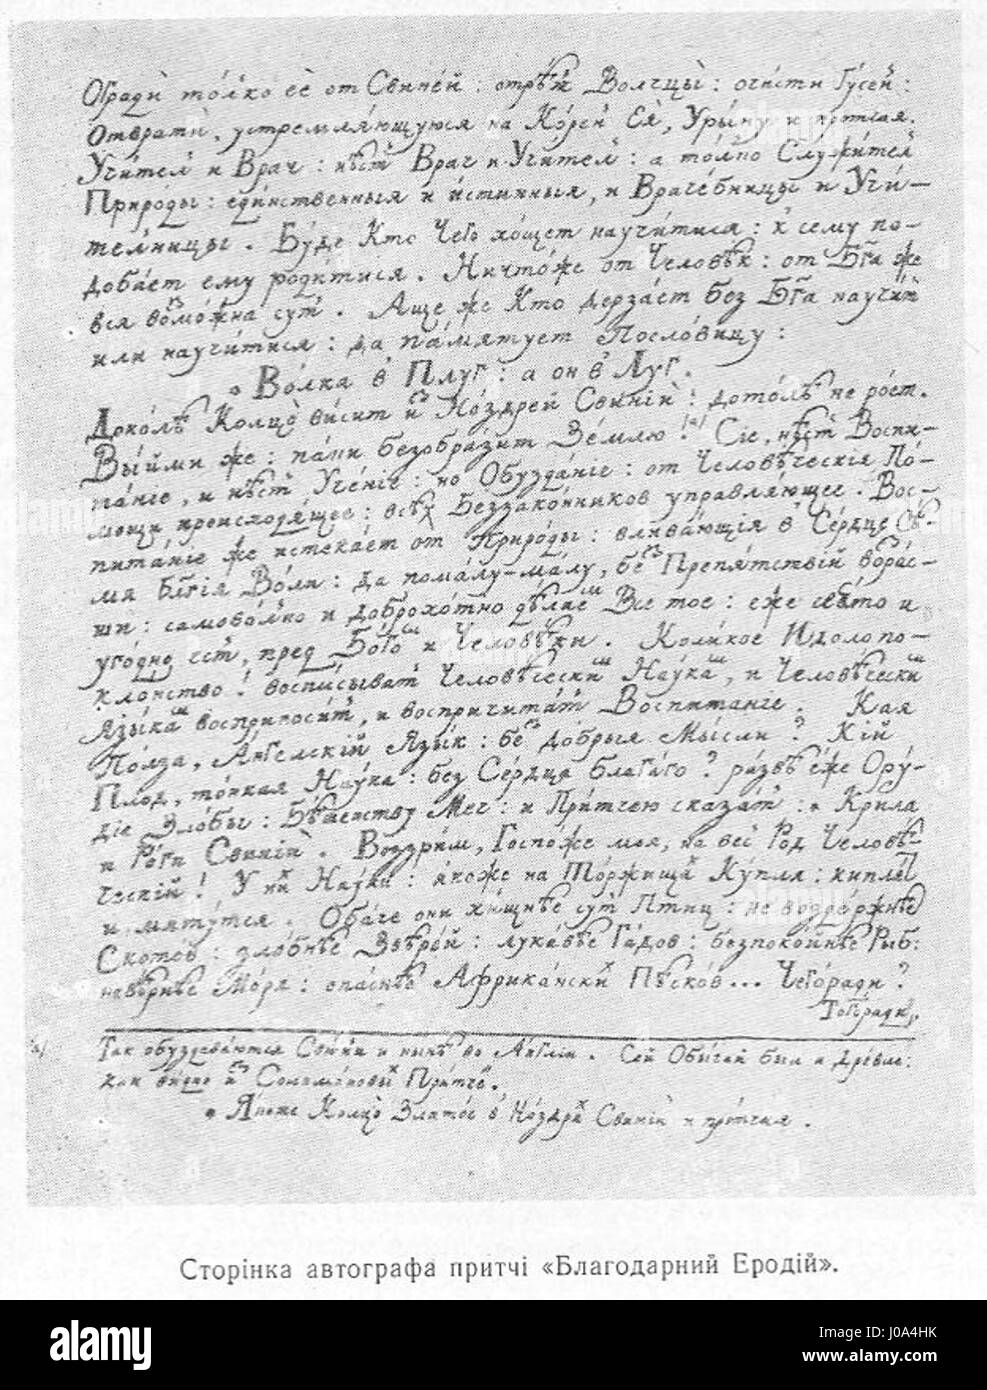 Огради то́лко еѐ от Свине́й : отрѣж Волчцы̀ : очи́сти Гусен̾ :
Отврати̾, устремля́ющуюся на Ко́рен̾ Ея̀, Ури́ну и протчая.
Учи́тел̾ и Врач : нѣст̾ Врач и Учи́тел̾ : а то́лко Служи́тел̾
Приро́ды : еди́нственныя и и́стинныя, и Враче́бницы и Учи́-
телницы. Бу́де Кто Чего̀ хо́щет научи́тися : к̾ сему по-
доба́ет ему роди́тися. Ничто́же от Человѣ́к : от Бг҃а же
вся возмо́жна сут̾. Аще же Кто дерза́ет без Бг҃а научи́т̾
или научи́тися : да па́мятует Посло́вицу :
* Во́лка в̾ Плуг : а он в̾ Луг.
Доко́лѣ Колцо̀ ви́сит из̾ Но́здрей Свині́и : дото́лѣ не рост.
Вы́йми же : па́ки безобра́зит Зе́млю ! /а/ Сіе, нѣст̾ Воспи-
та́ніе, и нѣст̾ Уче́ніе : но Обузда́ніе : от Человѣ́ческія По́-
мощи происходя́щее : всѣх Беззако́нников управля́ющее. Вос-
пита́ніе же истека́ет от Приро́ды : влива́ющія в̾ Се́рдце Сѣ́-
мя Бг҃ія Во́ли : да пома́лу-ма́лу, без Препя́тствій возра́с-
ши : самово́лно и доброхо́тно дѣ́лаем Все тое : еже свя́то и
уго́дно ест̾, пред Бо́гом и Человѣ́ки. Коли́кое Идолопо-
кло́нство ! воспи́сыват̾ Человѣ́ческим Нау́кам, и Человѣ́ческим
Язы́кам восприноси́т̾, и воспричита́т̾ Воспита́ніе. Кая
По́лза, А́нгелскій Язы́к : без до́брыя Мы́сли ? Кі́й
Плод, то́нкая Нау́ка : без Се́рдца благаго ? ра́звѣ еже Ору́-
діе Зло́бы : Бѣ́шенству Меч : и При́тчею сказа́т̾ : * Крила
и Ро́ги Свині́и. Воззри́м, Госпоже моя, на весь Род Человѣ́-
ческій ! У них Нау́ки : якоже на То́ржищах Ку́пля : кипя́т̾
и мяту́тся. Оба́че они хи́щнѣе сут̾ Птиц : невозде́ржнѣе
Ското́в : зло́бнѣе Звѣре́й : лука́вѣе Га́дов : безпоко́йнѣе Рыб :
невѣ́рнѣе Мо́ря : опа́снѣе Африка́нских Пѣско́в... Чего́ради ?
Того́ради,
а/ Так обуздева́ются Свині́и и нынѣ во А́нгліи. Сей Обы́чай был и дре́вле :
как ви́дно из Соломо́новых При́тчей.
* Якоже Колцо̀ Злато́е в̾ Но́здрях Свині́и и про́тчая.
Сторінка автографа притчі «Благодарний Еродій».
alamy
Image ID: J0A4HK
www.alamy.com